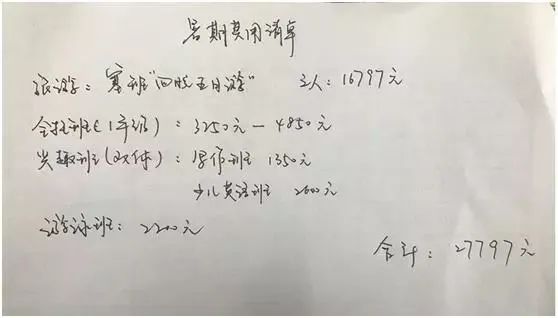 暑期费用清单
旅游：塞班“四晚五日游” 三人：16797元
全托班（1年级）：3250元—4850元
兴趣班：写作班 1350元
少儿英语班 2600元
游泳班：2200元
合计：27797元